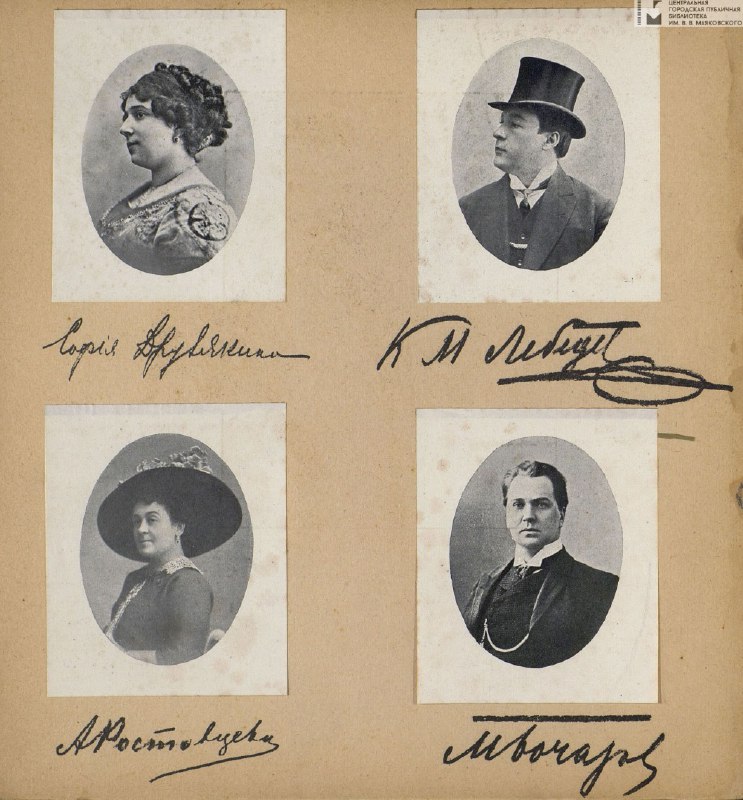 ЦЕНТРАЛЬНАЯ
ГОРОДСКАЯ ПУБЛИЧНАЯ
БИБЛИОТЕКА
ИМ. В. В. МАЯКОВСКОГО
Софія Друзякина
К М Лебедев
А Ростовцева
М Бочаров